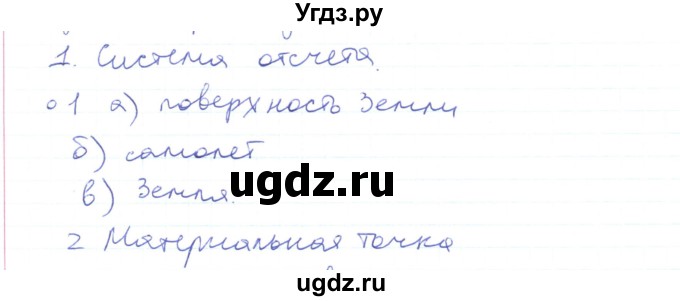 Угдз.ру
1. Система отсчета.
о1 а) поверхность Земли
б) самолет
в) Земля.
ugdz.ru
2 Материальная точка
ugdz.ru